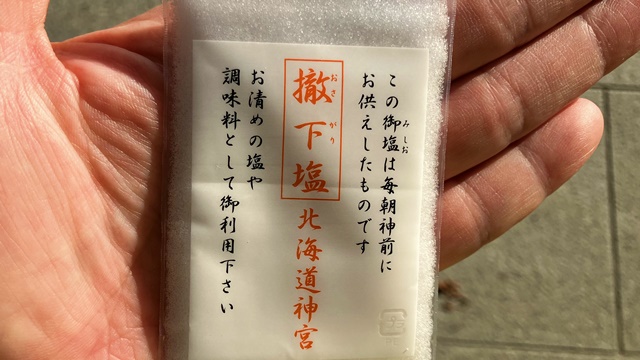 この御塩は毎朝神前に
お供えしたものです
撤下塩 北海道神宮
お清めの塩や
調味料として御利用下さい
みしお
おさ
がり